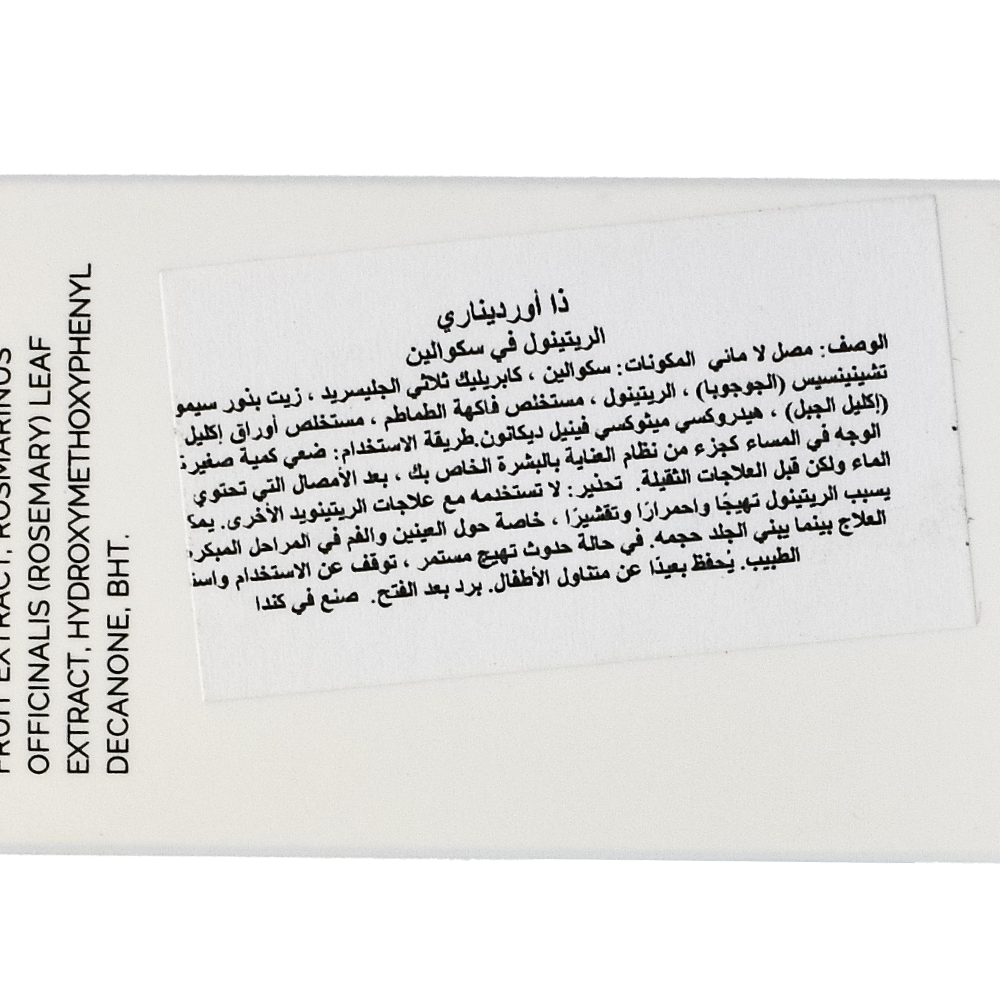 ذا أورديناري
الريتينول في سكوالين
الوصف: مصل لا مائي المكونات: سكوالين ، كابريليك ثلاثي الجليسريد ، زيت بذور سيمو
تشينينسيس (الجوجوبا) ، الريتينول ، مستخلص فاكهة الطماطم ، مستخلص أوراق إكليل
(إكليل الجبل) ، هيدروكسي ميثوكسي فينيل ديكانون.طريقة الاستخدام: ضعي كمية صغيرة
الوجه في المساء كجزء من نظام العناية بالبشرة الخاص بك ، بعد الأمصال التي تحتوي
الماء ولكن قبل العلاجات الثقيلة. تحذير: لا تستخدمه مع علاجات الريتينويد الأخرى. يمك
يسبب الريتينول تهيجًا واحمرارًا وتقشيرًا ، خاصة حول العينين والفم في المراحل المبكر
العلاج بينما يبني الجلد حجمه. في حالة حدوث تهيج مستمر ، توقف عن الاستخدام واست
الطبيب. يُحفظ بعيدًا عن متناول الأطفال. برد بعد الفتح. صنع في كندا
FRUIT EXTRACT, ROSMARINUS
OFFICINALIS (ROSEMARY) LEAF
EXTRACT, HYDROXYMETHOXYPHENYL
DECANONE, BHT.